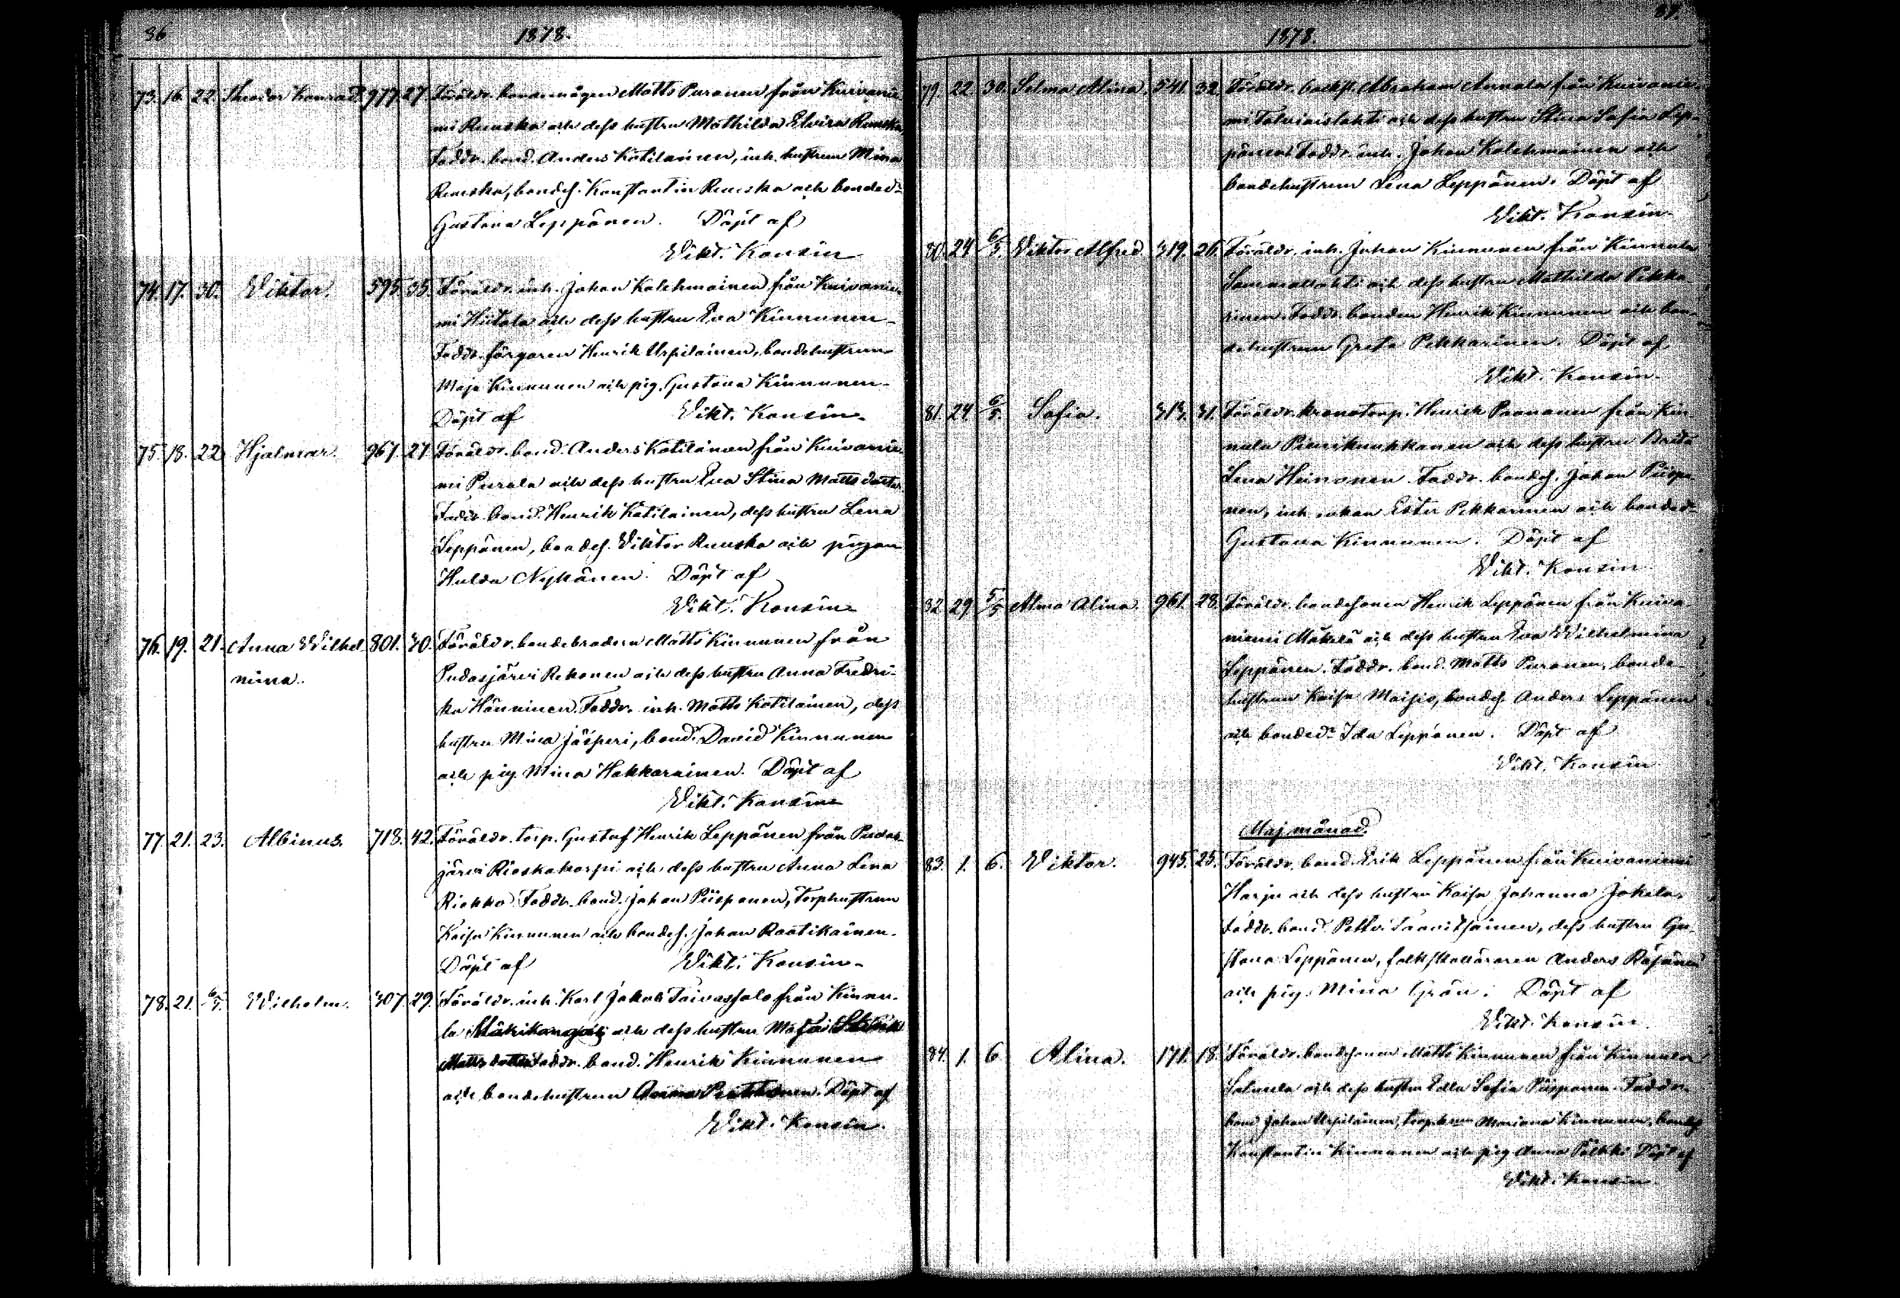 86
1878.
73. 16. 22. Theodor Konrad. 977. 27. Föräldr. bondemågen Matts Puranen från Kuivanie-
mi Ruuska och dess hustru Mathilda Elvira Ruuska
Faddr. bond. Anders Kotilainen, inh. hustrun Mina
Ruuska, bondes. Konstantin Ruuska och bonded:
Gustava Leppänen. Döpt af
Vikt. Konsin
74. 17. 30. Viktor. 595. 35. Föräldr. inh. Johan Kolehmainen från Kuivanie-
mi Hiitola och dess hustru Eva Kinnunen
Faddr. färgaren Henrik Urpilainen, bondehustrun
Maja Kinnunen och pig. Gustava Kinnunen
Döpt af Vikt. Konsin
75. 18. 22. Hjalmar. 967. 27. Föräldr. bond. Anders Kotilainen från Kuivanie-
mi Purala och dess hustru Eva Stina Mattsdotter.
Faddr. bond. Henrik Kotilainen, dess hustru Lena
Leppänen, bondes. Viktor Ruuska och pigan
Hulda Nykänen. Döpt af
Vikt. Konsin
76. 19. 21. Anna Wilhel- 801. 30. Föräldr. bondebrodern Matts Kinnunen från
mina. Pudasjärvi Rekonen och dess hustru Anna Fredri-
ka Hänninen. Faddr. inh. Matts Kotilainen, dess
hustru Mina Jäsperi, bond. David Kinnunen
och pig. Mina Hakkarainen. Döpt af
Vikt. Konsin
77. 21. 23. Albinus. 718. 42. Föräldr. torp. Gustaf Henrik Leppänen från Pudas-
järvi Rieskakorpi och dess hustru Anna Lena
Riekko. Faddr. bond. Johan Piispanen, torphustrun
Kaisa Kinnunen och bondes. Johan Raatikainen.
Döpt af Vikt. Konsin
78. 21. 6/5. Wilhelm. 307. 29. Föräldr. inh. Karl Jakob Taivassalo från Kinnu-
la och dess hustru
Faddr. bond. Henrik Kinnunen
och bondehustrun Anna Döpt af
Vikt. Konsin.
87.
1878.
79. 22. 30. Selma Alina. 541. 32. Föräldr. backst. Abraham Annala från Kuivanie-
mi Talviaislahti och dess hustru Stina Sofia Lep-
pänen. Faddr. inh. Johan Kolehmainen och
bondehustrun Lena Leppänen. Döpt af
Vikt. Konsin.
80. 24 6/5. Viktor Alfred. 319. 26. Föräldr. inh. Johan Kinnunen från Kinnula
och dess hustru Mathilda Pekka-
rinen. Faddr. bonden Henrik Kinnunen och bon-
dehustrun Greta Pekkarinen. Döpt af
Vikt. Konsin.
81. 24 6/5. Sofia. 313. 31. Föräldr. kronotorp. Henrik Paananen från Kin-
nula och dess hustru Brita
Lena Heinonen. Faddr. bondes. Johan Piispa-
nen, inh. enkan Ester Pekkarinen och bonded:
Gustava Kinnunen. Döpt af
Vikt. Konsin
82. 29 5/5 Alma Alina. 961. 28. Föräldr. bondesonen Henrik Leppänen från Kuiva-
niemi Mäkelä och dess hustru Eva Wilhelmina
Leppänen. Faddr. bond. Matts Puranen, bonde-
hustrun Kaisa Maisio, bondes. Anders Leppänen
och bonded: Ida Leppänen. Döpt af
Vikt. Konsin
Maj månad.
83. 1. 6. Viktor. 945. 25. Föräldr. bond. Erik Leppänen från Kuivaniemi
Harju och dess hustru Kaisa Johanna Jokela.
Faddr. bond. Petter Taavitsainen, dess hustru Gu-
stava Leppänen, folkskolläraren Anders Räsänen
och pig. Mina Grön. Döpt af
Vikt. Konsin
84. 1. 6. Alina. 171. 18. Föräldr. bondesonen Matts Kinnunen från Kinnula
Salmela och dess hustru Edla Sofia Piispanen. Faddr.
bond. Johan Urpilainen, Mariana Kinnunen, bondes.
Konstantin Kinnunen och pig. Anna Pölkki. Döpt af
Vikt. Konsin.